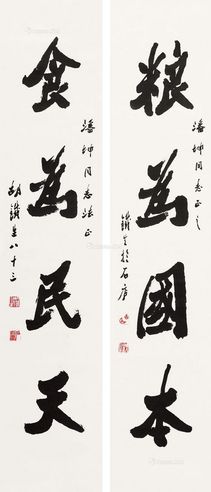 粮為國本
潘坤同志正之
鐵生於石庫
食為民天
潘坤同志法正
胡鐵生八十三